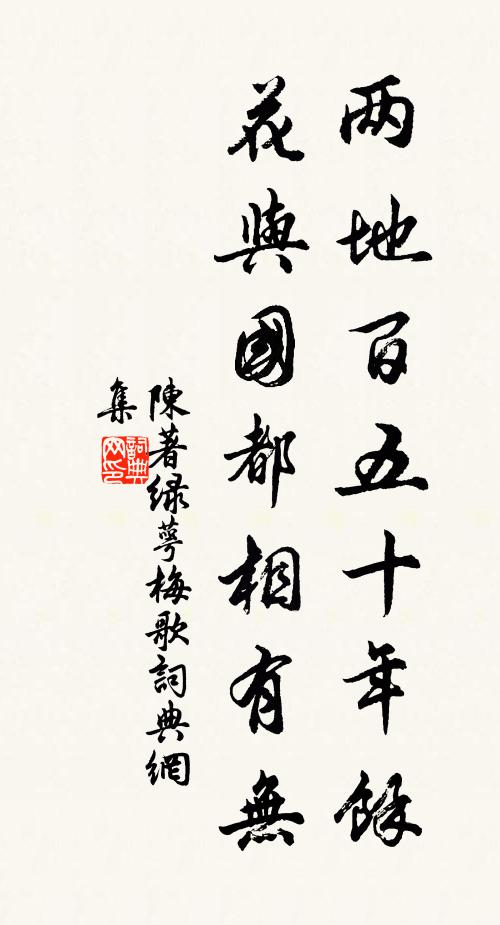 两地百五十年餘
花與國都相有無
陳著緑萼梅歌詞典網
集
詞典
网印